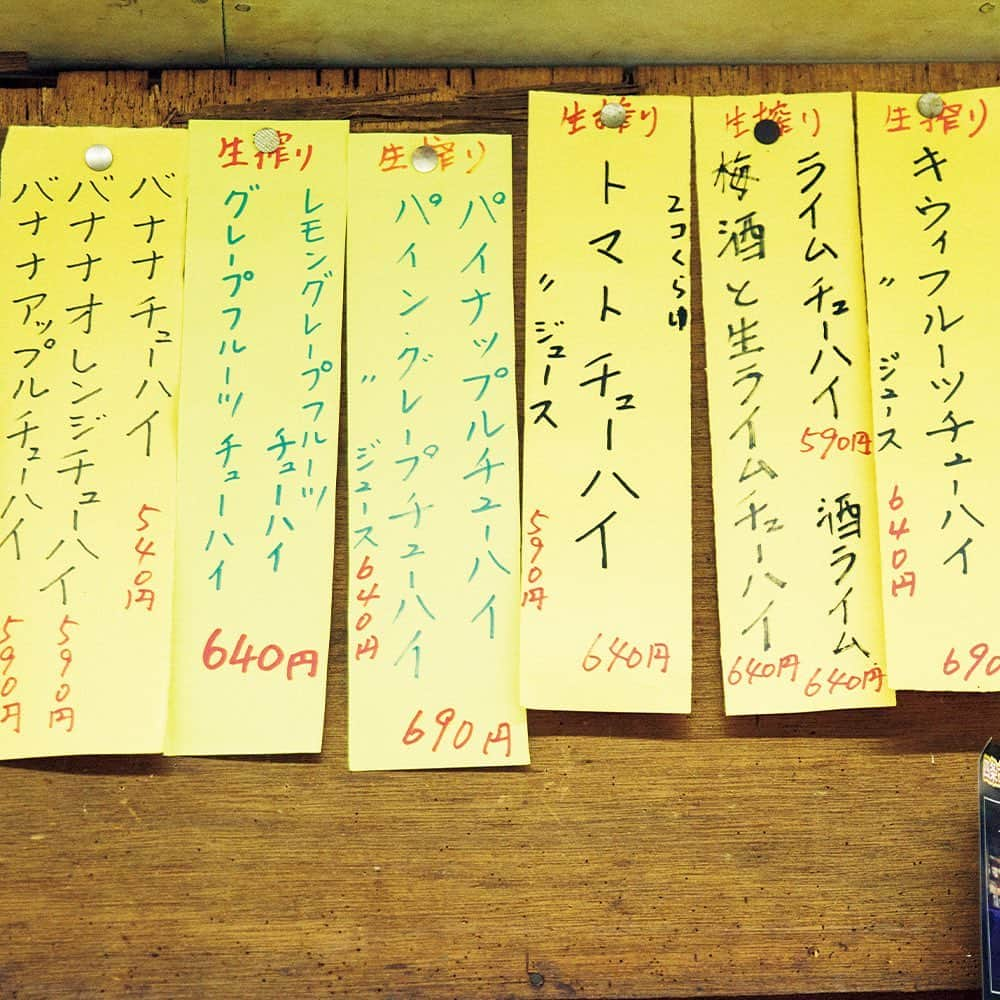 生搾り
キウィフルーツチューハイ
690
〃 ジュース
640円
生搾り
ライムチューハイ
590円
酒ライム
640円
梅酒と生ライムチューハイ
640円
生搾り
トマトチューハイ
640円
〃 ジュース
590円
生搾り
パイナップルチューハイ
パイン・グレープチューハイ
690円
〃 ジュース
640円
生搾り
レモングレープフルーツ
チューハイ
グレープフルーツ チューハイ
640円
バナナチューハイ
540円
バナナオレンジチューハイ
590円
バナナアップルチューハイ
590円